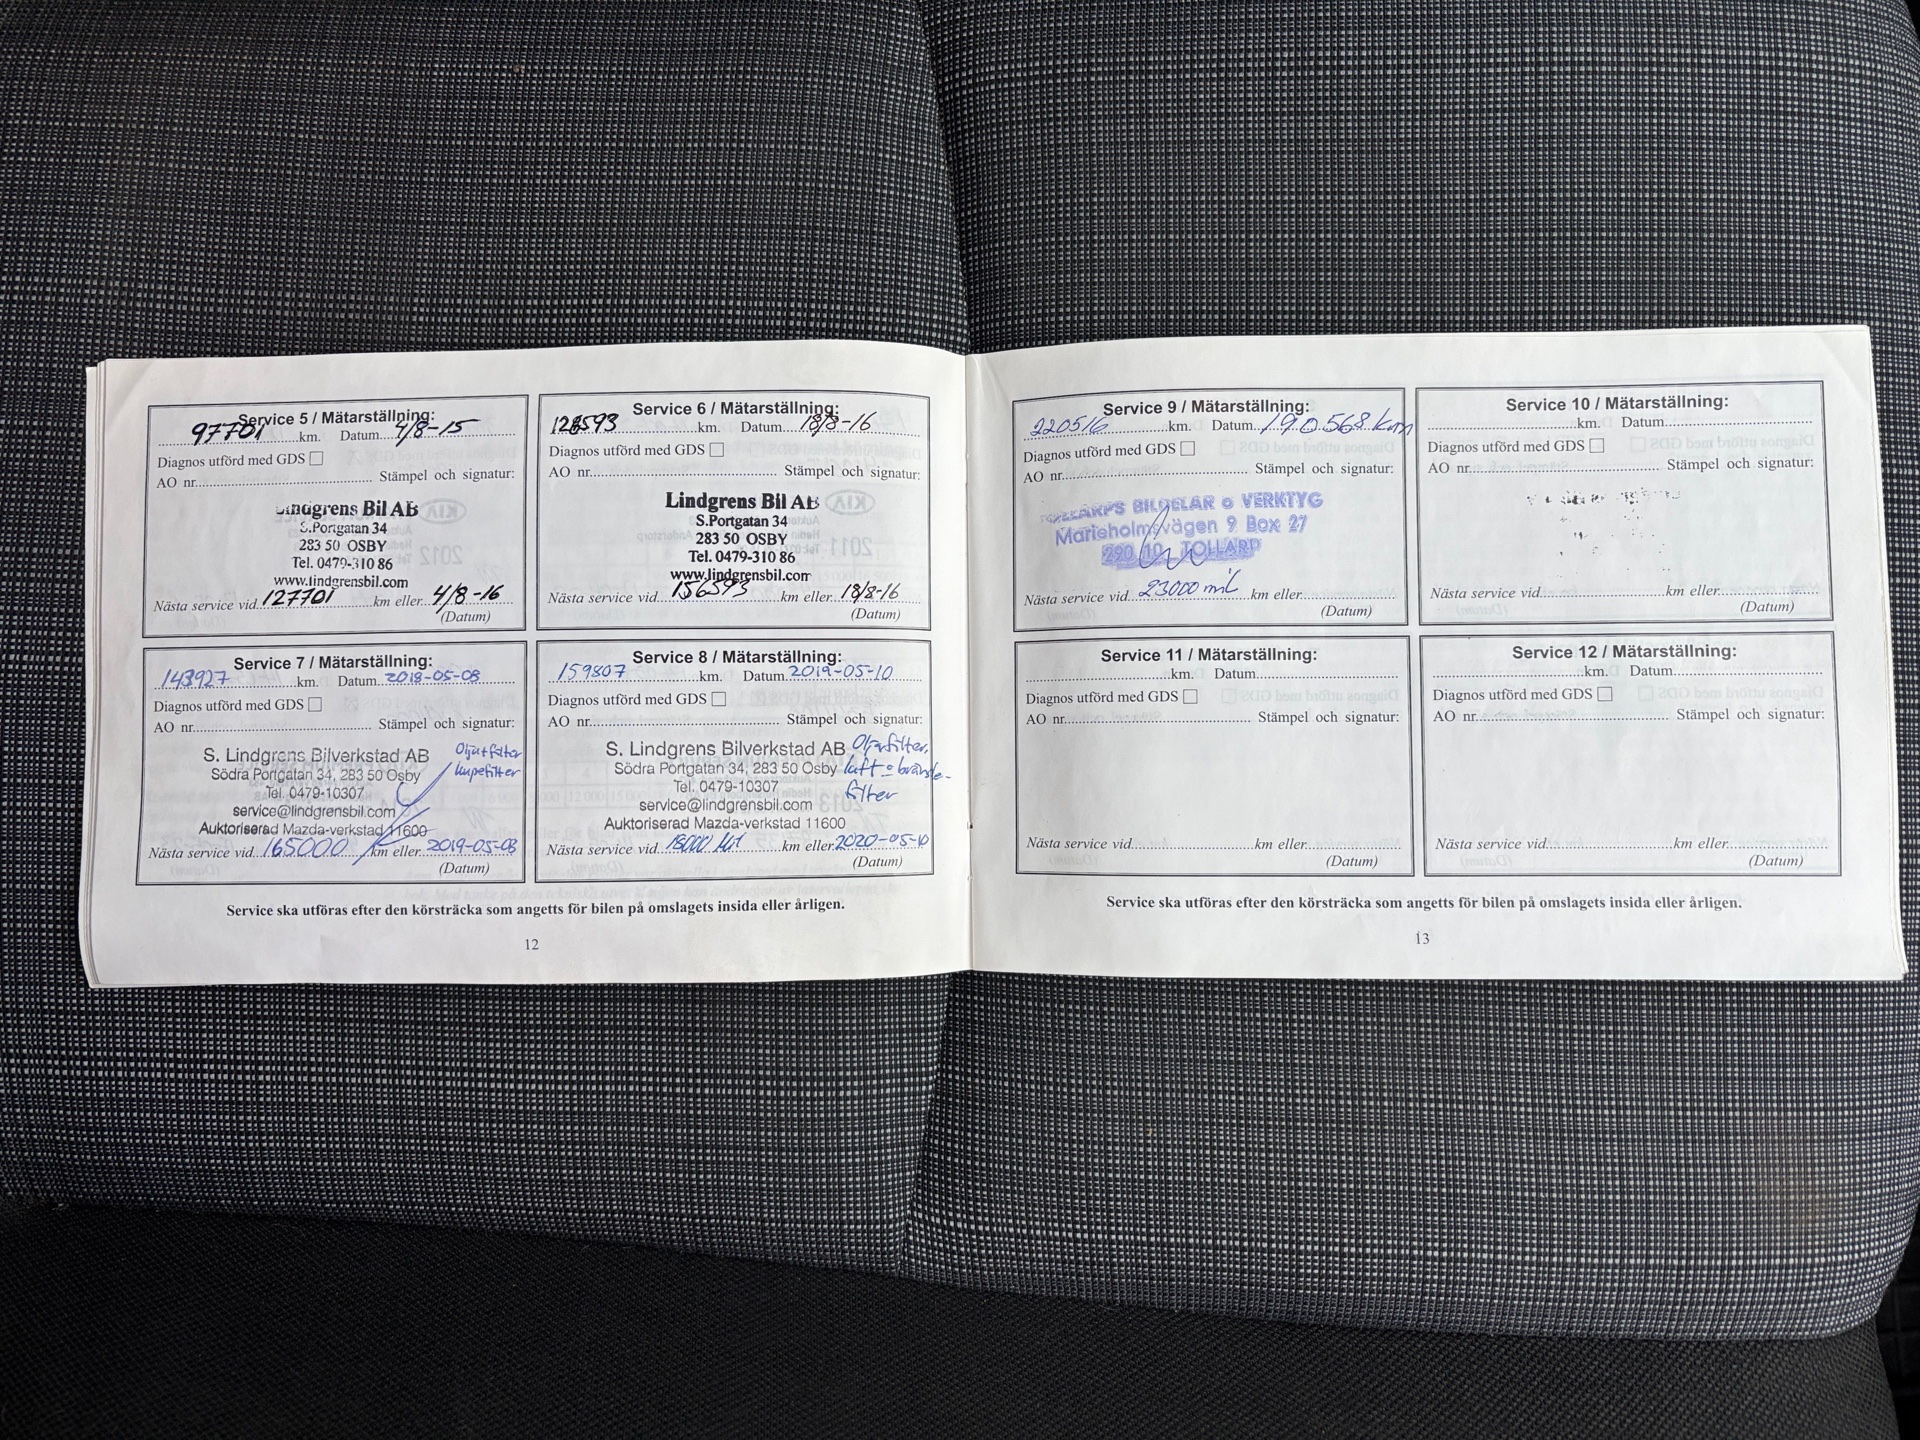 Service 5 / Mätarställning:
97701 km. Datum 4/8-15
Diagnos utförd med GDS
AO nr. Stämpel och signatur:
Lindgrens Bil AB
S.Portgatan 34
283 50 OSBY
Tel. 0479-310 86
www.lindgrensbil.com
Nästa service vid 127701 km eller 4/8-16
(Datum)
Service 6 / Mätarställning:
126593 km. Datum 18/8-16
Diagnos utförd med GDS
AO nr. Stämpel och signatur:
Lindgrens Bil AB
S.Portgatan 34
283 50 OSBY
Tel. 0479-310 86
www.lindgrensbil.com
Nästa service vid 156593 km eller 18/8-16
(Datum)
Service 7 / Mätarställning:
143927 km. Datum 2018-05-08
Diagnos utförd med GDS
AO nr. Stämpel och signatur:
S. Lindgrens Bilverkstad AB
Södra Portgatan 34, 283 50 Osby
kupefilter
Tel. 0479-10307
service@lindgrensbil.com
Auktoriserad Mazda-verkstad 11600
Nästa service vid 165000 km eller 2019-05-08
(Datum)
Service 8 / Mätarställning:
159807 km. Datum 2019-05-10
Diagnos utförd med GDS
AO nr. Stämpel och signatur:
S. Lindgrens Bilverkstad AB Oljefilter,
Södra Portgatan 34, 283 50 Osby luft o bränsle-
Tel. 0479-10307 filter
service@lindgrensbil.com
Auktoriserad Mazda-verkstad 11600
Nästa service vid km eller 2020-05-10
(Datum)
Service ska utföras efter den körsträcka som angetts för bilen på omslagets insida eller årligen.
12
Service 9 / Mätarställning:
220516 km. Datum 190568 km
Diagnos utförd med GDS
AO nr. Stämpel och signatur:
BILDELAR o VERKTYG
Marieholmsvägen 9 Box 27
290 10 TOLLARP
Nästa service vid 23000 mil km eller
(Datum)
Service 10 / Mätarställning:
km. Datum
Diagnos utförd med GDS
AO nr. Stämpel och signatur:
Nästa service vid km eller
(Datum)
Service 11 / Mätarställning:
km. Datum
Diagnos utförd med GDS
AO nr. Stämpel och signatur:
Nästa service vid km eller
(Datum)
Service 12 / Mätarställning:
km. Datum
Diagnos utförd med GDS
AO nr. Stämpel och signatur:
Nästa service vid km eller
(Datum)
Service ska utföras efter den körsträcka som angetts för bilen på omslagets insida eller årligen.
13